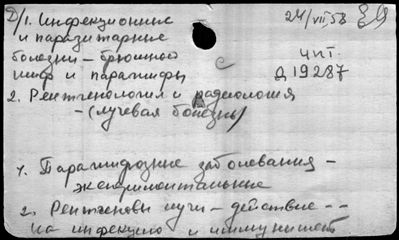 Д/1. Инфекционные
и паразитарные
болезни – брюшной
тиф и паратифы
24/VII 58
с
чит.
Д 19287
2. Рентгенология и радиология
– (лучевая болезнь)
1. Паратифозные заболевания –
экспериментальные
2. Рентгеновы лучи – действие --
на инфекцию и иммунитет